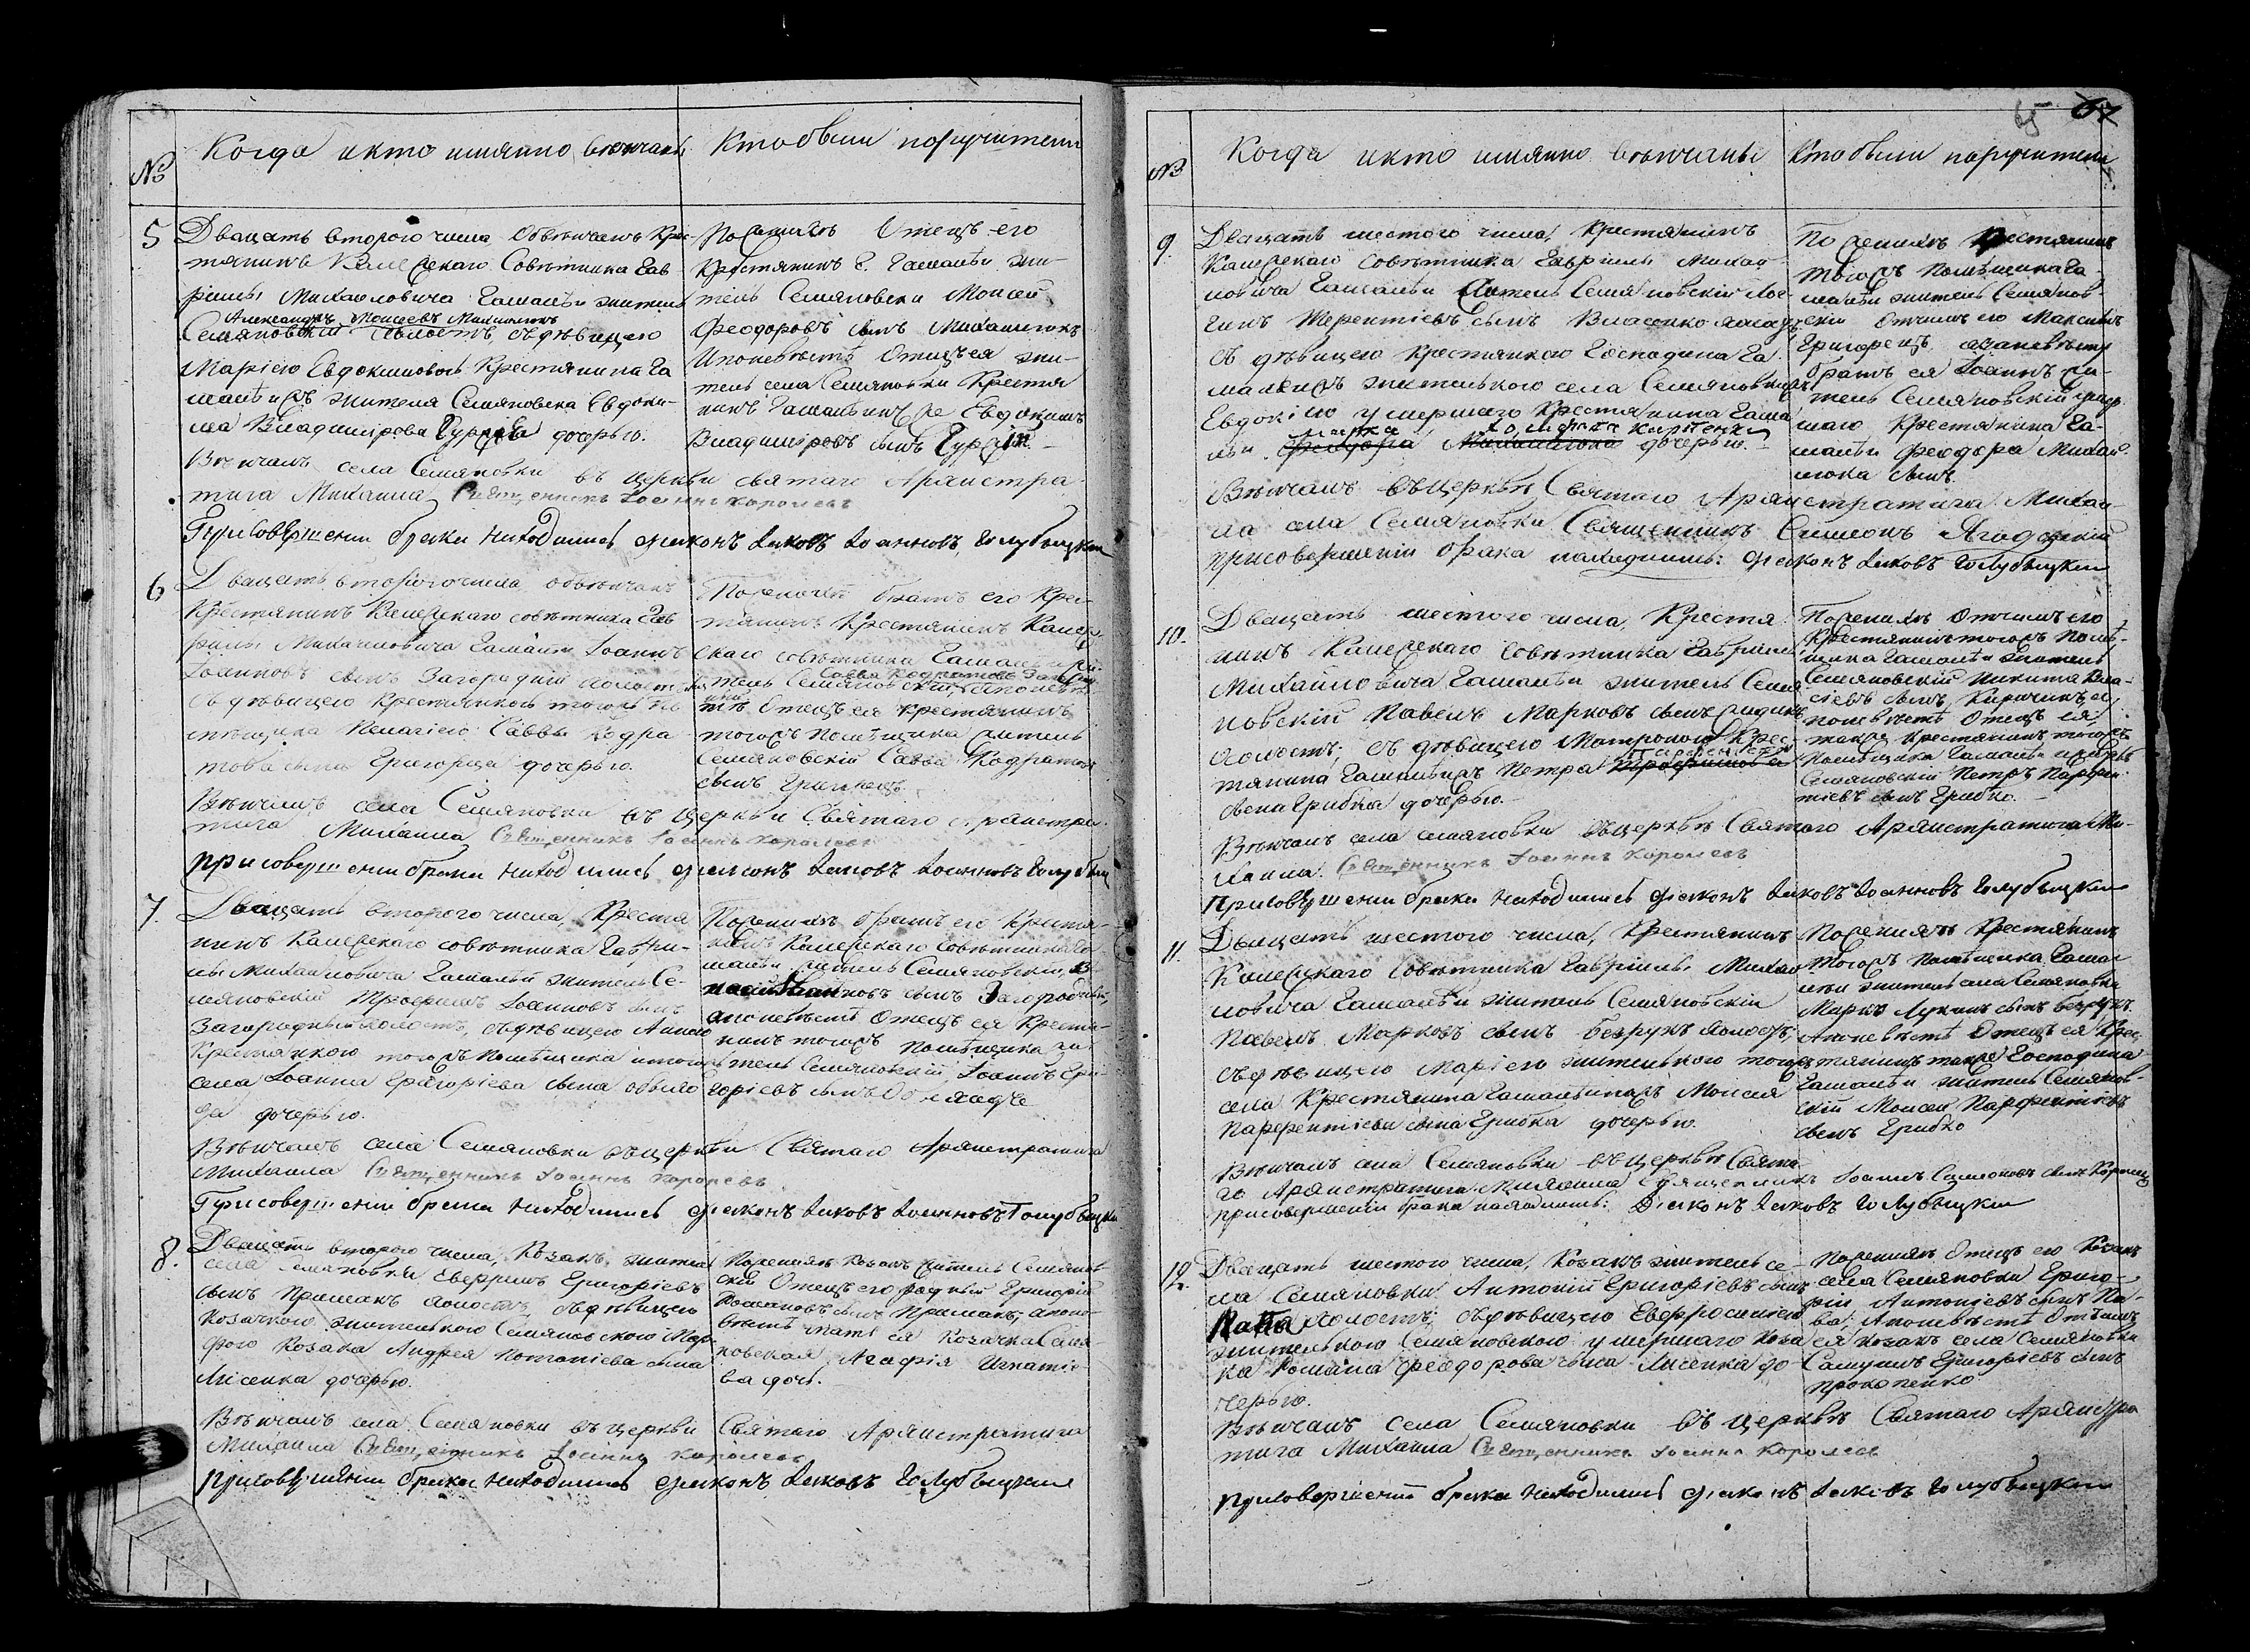 №
Когда икто имянно венчаны
Кто были поручители
5
Двацать второго числа обвѣнчанъ Крес-
тянинъ Камерскаго Совѣтника Гав
рiилы Михаиловича Гамалѣи житель
Александръ Моисеевъ
Семяновскiй холостъ, съдѣвицею
Марiею Евдокимовою Крестянина Га
малѣи житeля Семяновска Евдоки-
ма Владимiрова дочерью.
Вѣнчалъ села Семяновки въ Церкви святаго Архистра-
тига Михаила Священникъ Iоаннъ Королевъ
Присовершенiи брака находились дiаконъ Iаковъ Iоанновъ Голубицкiи
По женихѣ Отецъ его
Крестянинъ Г. Гамалѣи жи-
тель Семяновски Моисей
Феодоровъ сынъ
Ипоневѣстѣ Отецъ ея жи-
тель села Семяновки Крестя
нинъ Евдокимъ
Владимiровъ сынъ
6
Двацать второго числа, обвѣнчанъ
Крестянинъ Камерскаго совѣтника Гав
рiилы Михаиловича Гамалѣи Iоаннъ
Iоанновъ сынъ Загороднiй холостъ
съдѣвицею Крестянкою тогожъ По
мѣщика Пелагiею Саввы Кодра
това сына Григорца дочерью.
Вѣнчалъ села Семяновки въ Церкви Святаго Архистра-
тига Михаила Священникъ Iоаннъ Королевъ
присовершенiи брака находились дiаконъ Iаковъ Iоанновъ
Поженихѣ братъ его Крес-
тянинъ Крестянинъ Камер-
скаго совѣтника Гамалѣи жи-
тель Семяновскiй,
Отецъ ея крестянинъ
тогожъ Помѣщика житель
Семяновскiй Савва Кодратов
сынъ
7.
Двацать второго числа, Крестя
нинъ Камерскаго совѣтника Гаврi-
илы Михаиловича Гамалѣи житель Се-
мяновскiй Трофимъ Iоанновъ сынъ
Загороднiй холостъ, съдѣвицею Анною
Крестянкою тогожъ Помѣщика итогожъ
села Iоанна Григорiева сына
дочерью.
Вѣнчалъ села Семяновки въцеркви Святаго Архистратига
Михаила Священникъ Iоаннъ Королевъ
Присовершенiи брака находились дiаконъ Iаковъ Iоанновъ Голубицкiи
Поженихѣ братъ его Крестя-
нинъ Камерскаго Совѣтника Га
малѣи житель Семяновскiй,
сынъ Загороднiй,
апоневѣстѣ Отецъ ея Крестя-
нинъ тогожъ Помѣщика жи-
тель Семяновскiй Iоаннъ Гри
горiевъ сынъ
8.
Двацать второго числа, Козакъ, житель
села Семяновки Григорiевъ
сынъ Примакъ холостъ съдѣвицею
Козачкою жителькою Семяновскою
Козака Андрея Потапiева сына
Лисенка дочерью.
Вѣнчалъ села Семяновки въ церкви Святаго Архистратига
Михаила Священникъ Iоаннъ Королевъ
присовершенiи брака находились дiаконъ Iаковъ Голубицкiи
Поженихѣ Козакъ житель Семянов
скiй Отецъ его родный Григорiй
Романовъ сынъ Примакъ, апоне-
вѣстѣ мать ея Козачка Семя-
новская Агафiя Игнатiе-
ва дочь.
65
67
№
Когда икто имянно вѣнчаны
Кто были паручители
9.
Двацать шестого числа, Крестянинъ
Камерскаго Совѣтника Гаврiилы Михаи
ловича Гамалѣи житель Семяновскiй Лог-
гинъ Терентiевъ сынъ Власенко холостъ
съ дѣвицею крестянкою Господина Га-
малѣи жителькою села Семяновки
Евдокiею умершаго Крестянина Гама
Марка
лѣи Феодора дочерью.
Вѣнчалъ въЦерквѣ Святаго Архистратига Михаи-
ла села Семяновки Священникъ Симеонъ
присовершенiи брака находились: дiаконъ Iаковъ Голубицкiи
По женихѣ Крестянинъ
тогожъ Помѣщика Га-
малѣи житель Семянов-
скiй Отчимъ его Максимъ
Григорецъ апаневѣсте
братъ ея Iоаннъ жи-
тель Семяновскiй умер-
шаго Крестянина Га-
малѣи Феодора Михай
люка сынъ.
10.
Двацать шестого числа, Крестя
нинъ Камерскаго Совѣтника Гаврiилы
Михайловича Гамалѣи житель Семя
новскiй Павелъ Марковъ сынъ
холостъ; съ дѣвицею Матроною Крес-
тянина Гамалѣи Петра
сына Грибка дочерью.
Вѣнчалъ села Семяновки въцерквѣ Святаго Архистратига Ми-
хаила. Священникъ Iоаннъ Королевъ
присовершенiи брака находились дiаконъ Iаковъ Iоанновъ Голубицкiи
Поженихѣ Отчимъ его
Крестянинъ тогожъ Помѣ-
щика Гамалѣи житель
Семяновскiй Никита Вла-
сiевъ сынъ Киричикъ, а
поневѣстѣ Отецъ ея
также крестянинъ тогожъ
Помѣщика Гамалѣи
Семяновскiй Петръ Парфен-
тiевъ сынъ Грибко.
11.
Двацать шестого числа, Крестянинъ
Камерскаго Совѣтника Гаврiилы Михаи
ловича Гамалѣи житель Семяновскiи
Павелъ Марковъ сынъ Безрукъ холостъ,
съдѣвицею Марiею жителькою тогожъ
села Крестянина Гамалѣи Моисея
Парфентiева сына Грибка дочерью.
Вѣнчалъ села Семяновки въЦерквѣ Свята-
го Архистратига Михаила Священникъ Iоаннъ Симеоновъ сынъ
присовершенiи брака находились: Дiаконъ Iаковъ Голубицкiи
Поженихѣ Крестянинъ
тогожъ Помѣщика Гама
лѣи житель села Семяновки
Марко Лукинъ сынъ Безрукъ.
Апоневѣстѣ Отецъ ея Крес-
тянинъ также Господина
Гамалѣи житель Семянов-
скiй Моисей Парфентiевъ
сынъ Грибко
12.
Двацать шестого числа, Козакъ житель се-
ла Семяновки Антонiй Григорiевъ сынъ
холостъ; съдѣвицею Евфросинiею
жителькою Семяновскою умершаго Коза
ка Романа Феодорова сына Лисенка до-
черью.
Вѣнчалъ села Семяновки въ церквѣ Святаго Архистра
тига Михаила Священникъ Iоаннъ Королевъ
присовершенiи брака находились дiаконъ Iаковъ Голубицкiи
Поженихѣ Отецъ его Козакъ
села Семяновки Григо-
рiй Антонiевъ сынъ
Апоневѣстѣ Отчимъ
ея козакъ села Семяновки
Самуилъ Григорiевъ сынъ
Прокопенко